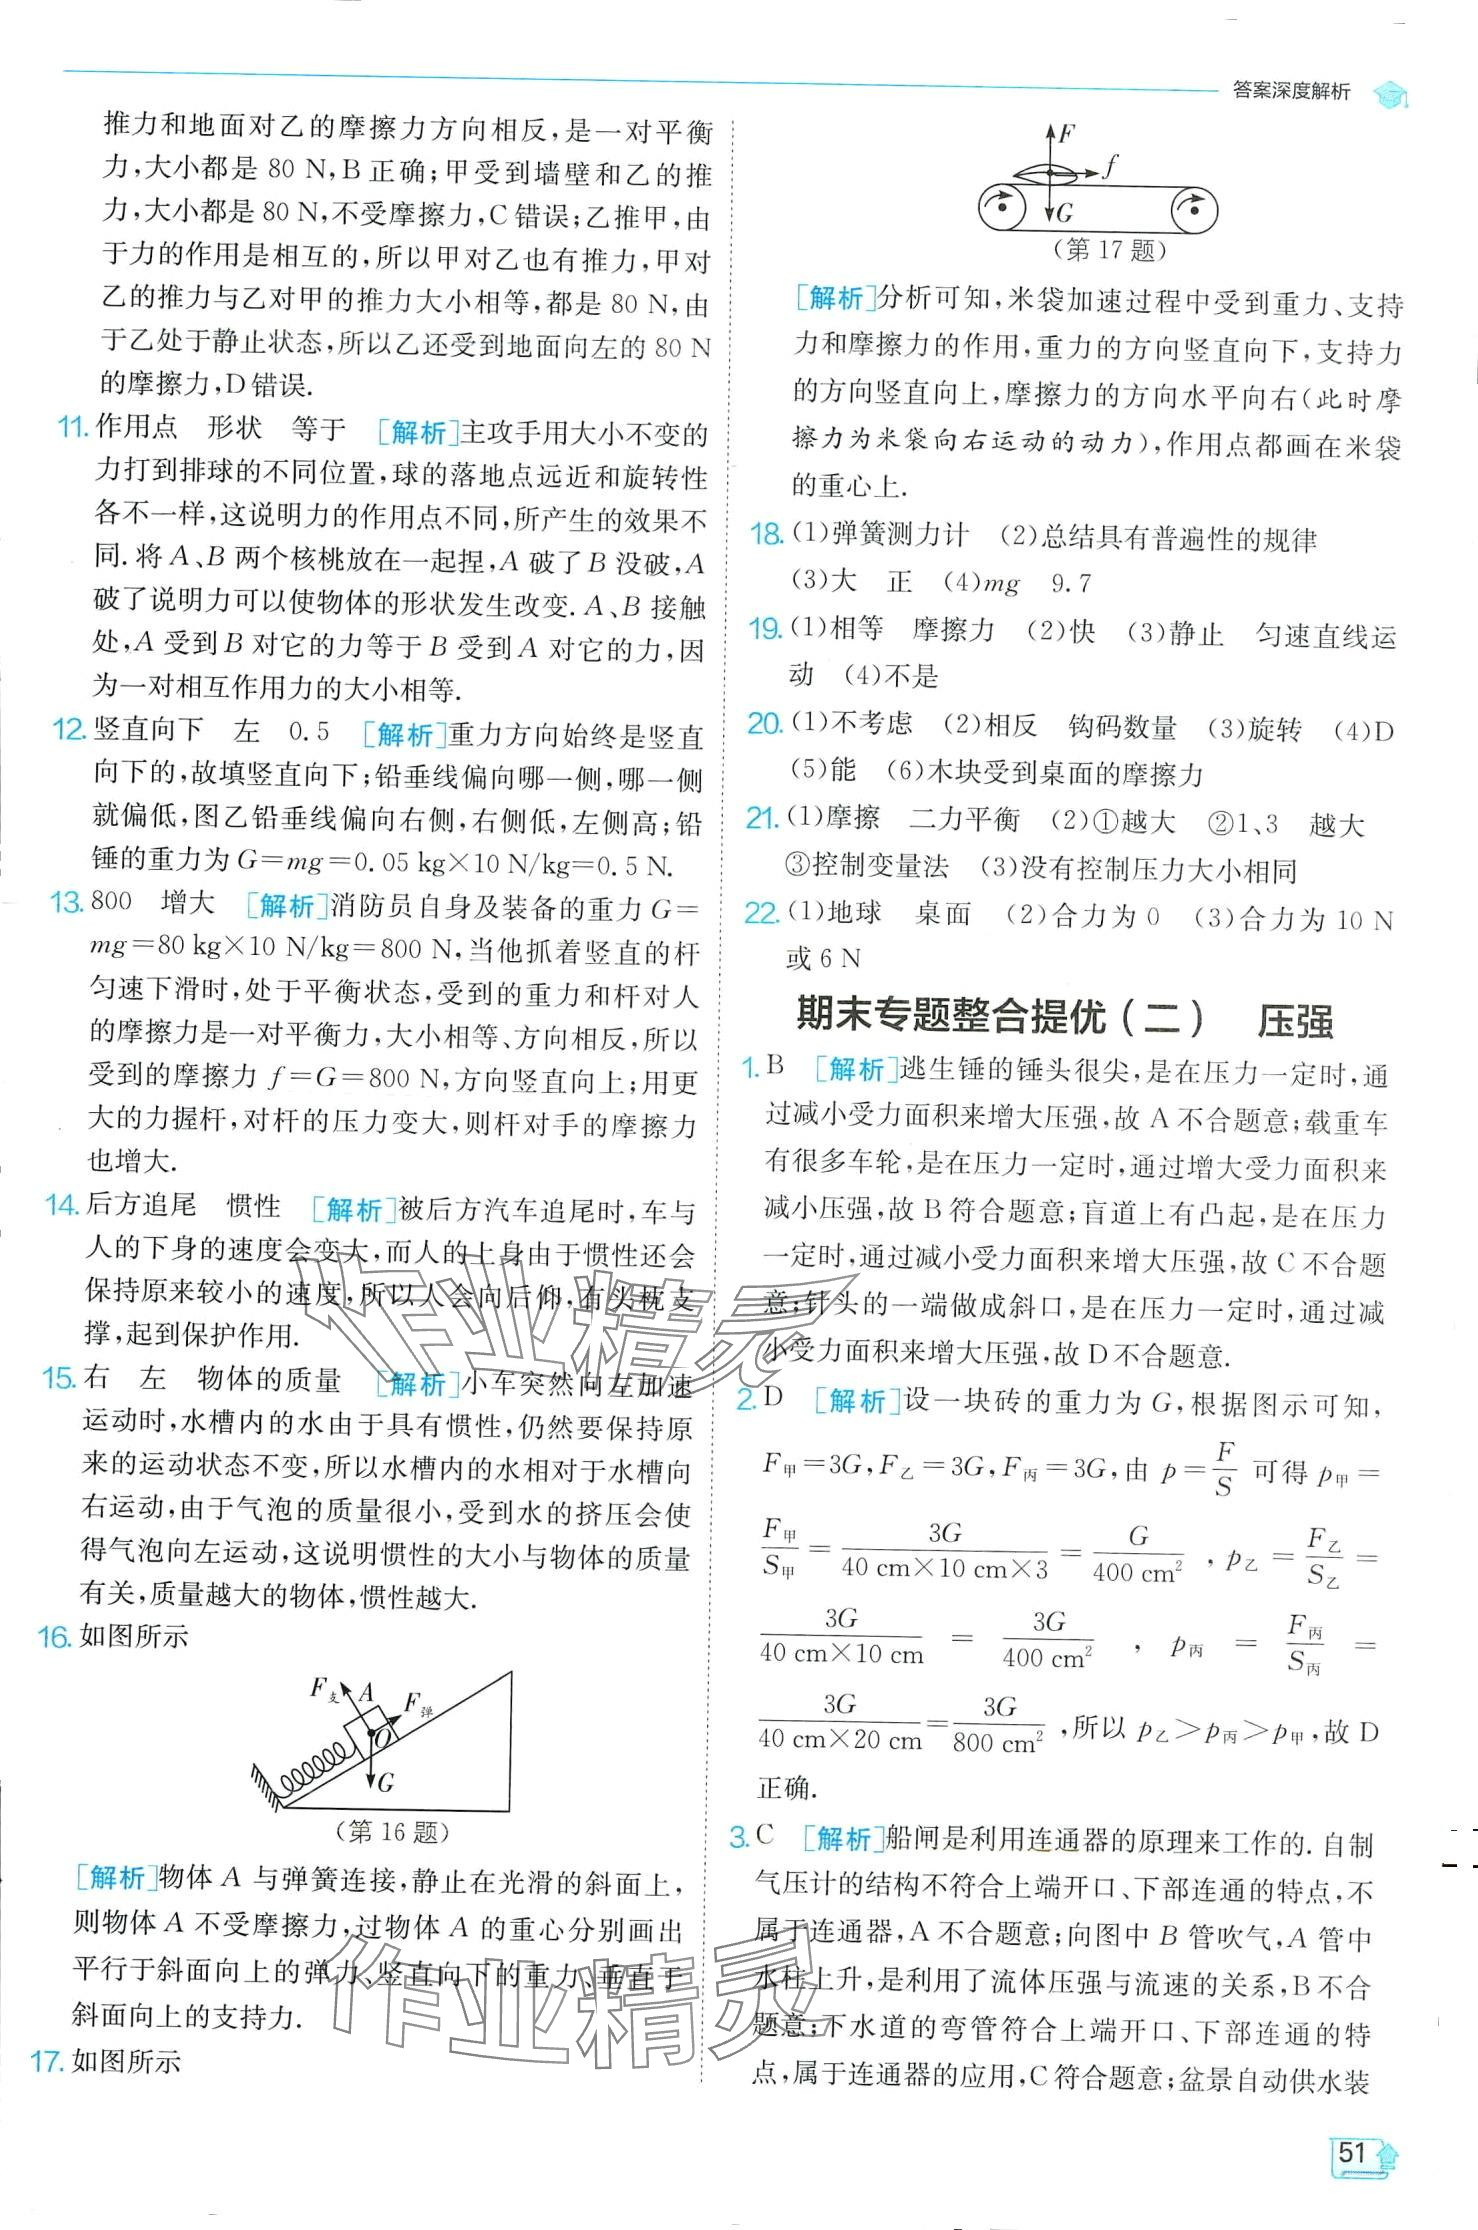 答案深度解析
推力和地面对乙的摩擦力方向相反,是一对平衡
力,大小都是 80 N,B 正确;甲受到墙壁和乙的推
力,大小都是 80 N,不受摩擦力,C 错误;乙推甲,由
于力的作用是相互的,所以甲对乙也有推力,甲对
乙的推力与乙对甲的推力大小相等,都是 80 N,由
于乙处于静止状态,所以乙还受到地面向左的 80 N
的摩擦力,D 错误.
11. 作用点 形状 等于 [解析]主攻手用大小不变的
力打到排球的不同位置,球的落地点远近和旋转性
各不一样,这说明力的作用点不同,所产生的效果不
同.将 A、B 两个核桃放在一起捏,A 破了 B 没破,A
破了说明力可以使物体的形状发生改变.A、B 接触
处,A 受到 B 对它的力等于 B 受到 A 对它的力,因
为一对相互作用力的大小相等.
12. 竖直向下 左 0.5 [解析]重力方向始终是竖直
向下的,故填竖直向下;铅垂线偏向哪一侧,哪一侧
就偏低,图乙铅垂线偏向右侧,右侧低,左侧高;铅
锤的重力为 G=mg=0.05 kg×10 N/kg=0.5 N.
13. 800 增大 [解析]消防员自身及装备的重力 G=
mg=80 kg×10 N/kg=800 N,当他抓着竖直的杆
匀速下滑时,处于平衡状态,受到的重力和杆对人
的摩擦力是一对平衡力,大小相等、方向相反,所以
受到的摩擦力 f=G=800 N,方向竖直向上;用更
大的力握杆,对杆的压力变大,则杆对手的摩擦力
也增大.
14. 后方追尾 惯性 [解析]被后方汽车追尾时,车与
人的下身的速度会变大,而人的上身由于惯性还会
保持原来较小的速度,所以人会向后仰,有头枕支
撑,起到保护作用.
15. 右 左 物体的质量 [解析]小车突然向左加速
运动时,水槽内的水由于具有惯性,仍然要保持原
来的运动状态不变,所以水槽内的水相对于水槽向
右运动,由于气泡的质量很小,受到水的挤压会使
得气泡向左运动,这说明惯性的大小与物体的质量
有关,质量越大的物体,惯性越大.
16. 如图所示
F支 A F弹
O
G
(第 16 题)
[解析]物体 A 与弹簧连接,静止在光滑的斜面上,
则物体 A 不受摩擦力,过物体 A 的重心分别画出
平行于斜面向上的弹力、竖直向下的重力、垂直于
斜面向上的支持力.
17. 如图所示
F
f
G
(第 17 题)
[解析]分析可知,米袋加速过程中受到重力、支持
力和摩擦力的作用,重力的方向竖直向下,支持力
的方向竖直向上,摩擦力的方向水平向右(此时摩
擦力为米袋向右运动的动力),作用点都画在米袋
的重心上.
18. (1)弹簧测力计 (2)总结具有普遍性的规律
(3)大 正 (4)mg 9.7
19. (1)相等 摩擦力 (2)快 (3)静止 匀速直线运
动 (4)不是
20. (1)不考虑 (2)相反 钩码数量 (3)旋转 (4)D
(5)能 (6)木块受到桌面的摩擦力
21. (1)摩擦 二力平衡 (2)①越大 ②1、3 越大
③控制变量法 (3)没有控制压力大小相同
22. (1)地球 桌面 (2)合力为 0 (3)合力为 10 N
或 6 N
期末专题整合提优(二) 压强
1. B [解析]逃生锤的锤头很尖,是在压力一定时,通
过减小受力面积来增大压强,故 A 不合题意;载重车
有很多车轮,是在压力一定时,通过增大受力面积来
减小压强,故 B 符合题意;盲道上有凸起,是在压力
一定时,通过减小受力面积来增大压强,故 C 不合题
意;针头的一端做成斜口,是在压力一定时,通过减
小受力面积来增大压强,故 D 不合题意.
2. D [解析]设一块砖的重力为 G,根据图示可知,
F甲=3G,F乙=3G,F丙=3G,由 p=F/S 可得 p甲=
F甲/S甲=3G/(40 cm×10 cm×3)=G/(400 cm²),p乙=F乙/S乙=
3G/(40 cm×10 cm)=3G/(400 cm²),p丙=F丙/S丙=
3G/(40 cm×20 cm)=3G/(800 cm²),所以 p乙>p丙>p甲,故 D
正确.
3. C [解析]船闸是利用连通器的原理来工作的.自制
气压计的结构不符合上端开口、下部连通的特点,不
属于连通器,A 不合题意;向图中 B 管吹气,A 管中
水柱上升,是利用了流体压强与流速的关系,B 不合
题意;下水道的弯管符合上端开口、下部连通的特
点,属于连通器的应用,C 符合题意;盆景自动供水装
51
作业精灵
作业精灵